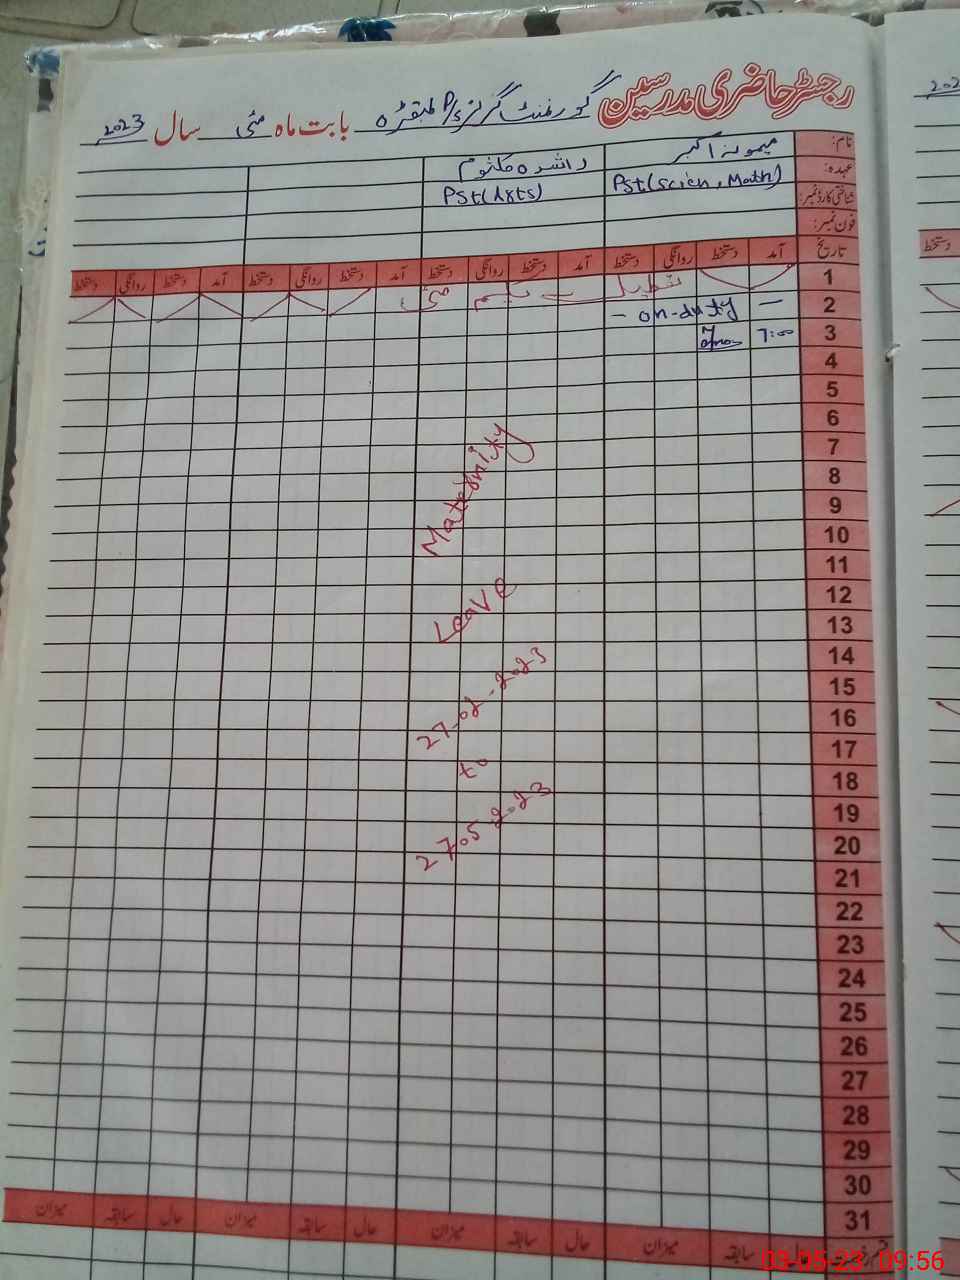 رجسٹر حاضری مدرسین گورنمنٹ گرلز P/S بابت ماہ مئی سال 2023
نام: میمونہ اکبر راشدہ کلثوم
عہدہ: PST(Scien, Math) PST(Arts)
شناختی کارڈ نمبر:
فون نمبر:
تاریخ آمد دستخط روانگی دستخط آمد دستخط روانگی دستخط آمد دستخط روانگی دستخط آمد دستخط روانگی دستخط
1 تعطیل یکم مئی
2 — on-duty —
3 7:00
4
5
6
7
8
9
10
11
12
13
14
15
16
17
18
19
20
21
22
23
24
25
26
27
28
29
30
31
Maternity
Leave
27-02-2023
to
27-05-2023
سابقہ میزان حال سابقہ میزان حال سابقہ میزان حال سابقہ میزان
202
دستخط
03-05-23 09:56